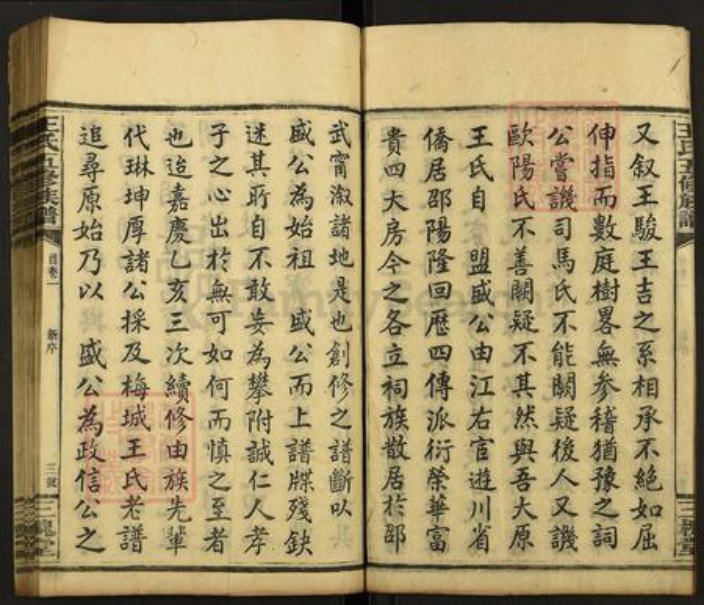 又叙王駿王吉之系相承不絕如屈
伸指而數庭樹畧無參稽猶豫之詞
公嘗譏司馬氏不能闕疑後人又譏
歐陽氏不善闕疑不其然與吾大原
王氏自 盟盛公由江右官遊川省
僑居邵陽隆回歷四傳派衍榮華富
貴四大房今之各立祠族散居於邵
武甯漵諸地是也創修之譜斷以
盛公為始祖 盛公而上譜牒殘缺
迷其所自不敢妄為攀附誠仁人孝
子之心出於無可如何而慎之至者
也迨嘉慶乙亥三次續修由族先輩
代琳坤厚諸公採及梅城王氏老譜
追尋原始乃以 盛公為政信公之
王氏五修族譜
首卷一
新序
三號
三槐堂